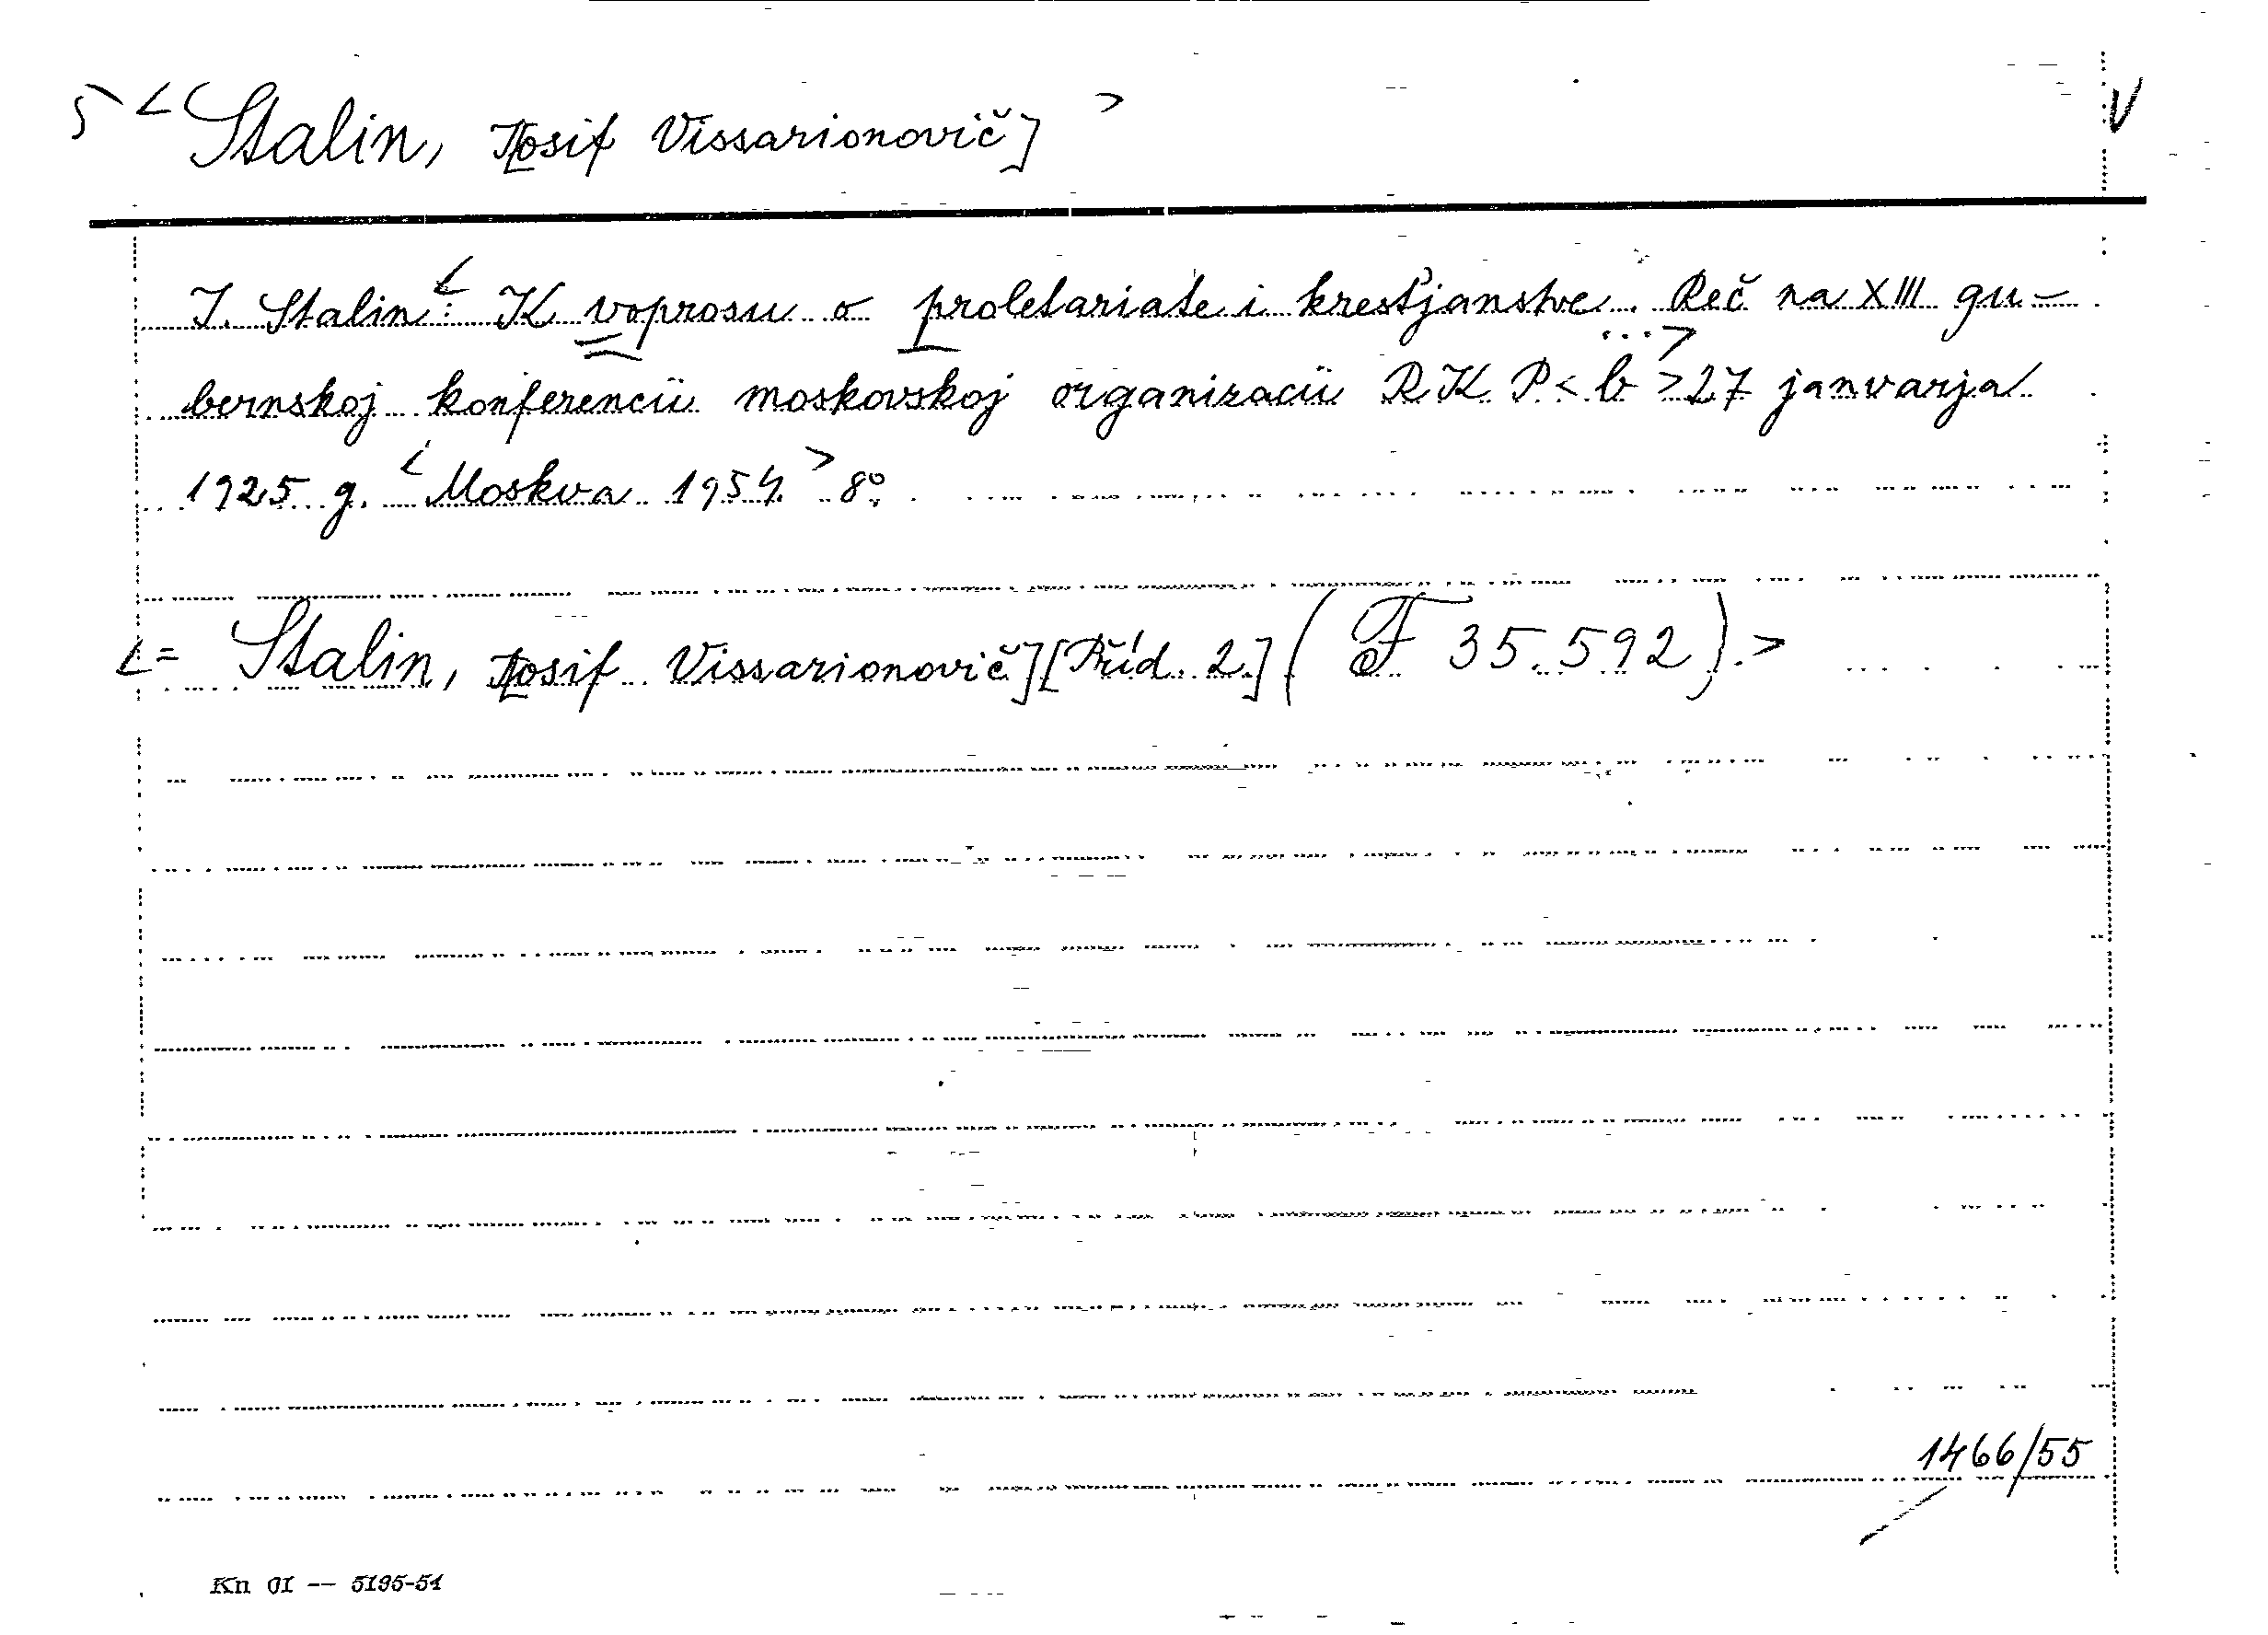 < Stalin, I[osif Vissarionovič] > V
I. Stalin: < K voprosu o proletariate i kresťjanstve. Reč na XIII gu-
bernskoj konferencii moskovskoj organizacii RKP <b> 27 janvarja ...>
1925 g. < Moskva 1954. > 8°.
<= Stalin, I[osif Vissarionovič] [Příd. 2.] (F 35.592).>
1466/55
Kn 01 -- 5195-54